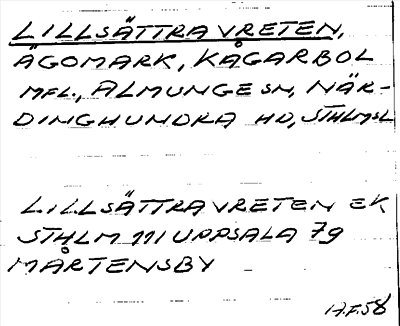 LILLSÄTTRAVRETEN,
ÄGOMARK, KÅGARBOL
MFL., ALMUNGE SN, NÄR-
DINGHUNDRA HD, STHLMSL
LILLSÄTTRAVRETEN EK
STHLM 111 UPPSALA 79
MÅRTENSBY